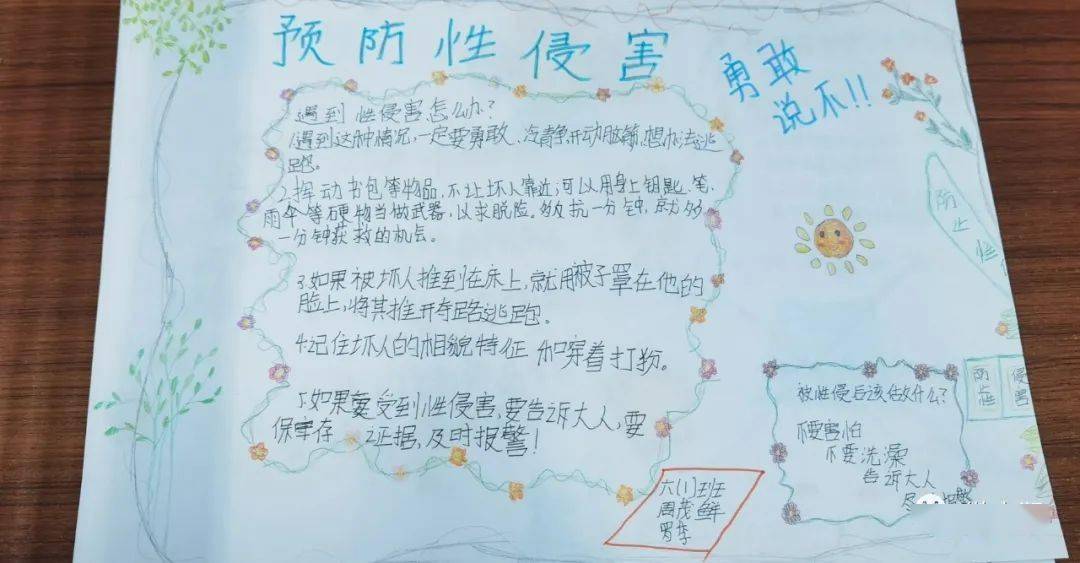 预防性侵害
勇敢
说不!!
遇到性侵害怎么办?
1.遇到这种情况,一定要勇敢、冷静,开动脑筋,想办法逃
跑。
2.挥动书包等物品,不让坏人靠近;可以用身上钥匙、笔、
雨伞等硬物当做武器,以求脱险。多抗一分钟,就多
一分钟获救的机会。
3.如果被坏人推到在床上,就用被子罩在他的
脸上,将其推开夺路逃跑。
4.记住坏人的相貌特征和穿着打扮。
5.如果受到性侵害,要告诉大人,要
保存证据,及时报警!
六(1)班
周茂鲜
罗李
被性侵后该做什么?
不要害怕
不要洗澡
告诉大人
尽
防止
防性
侵害